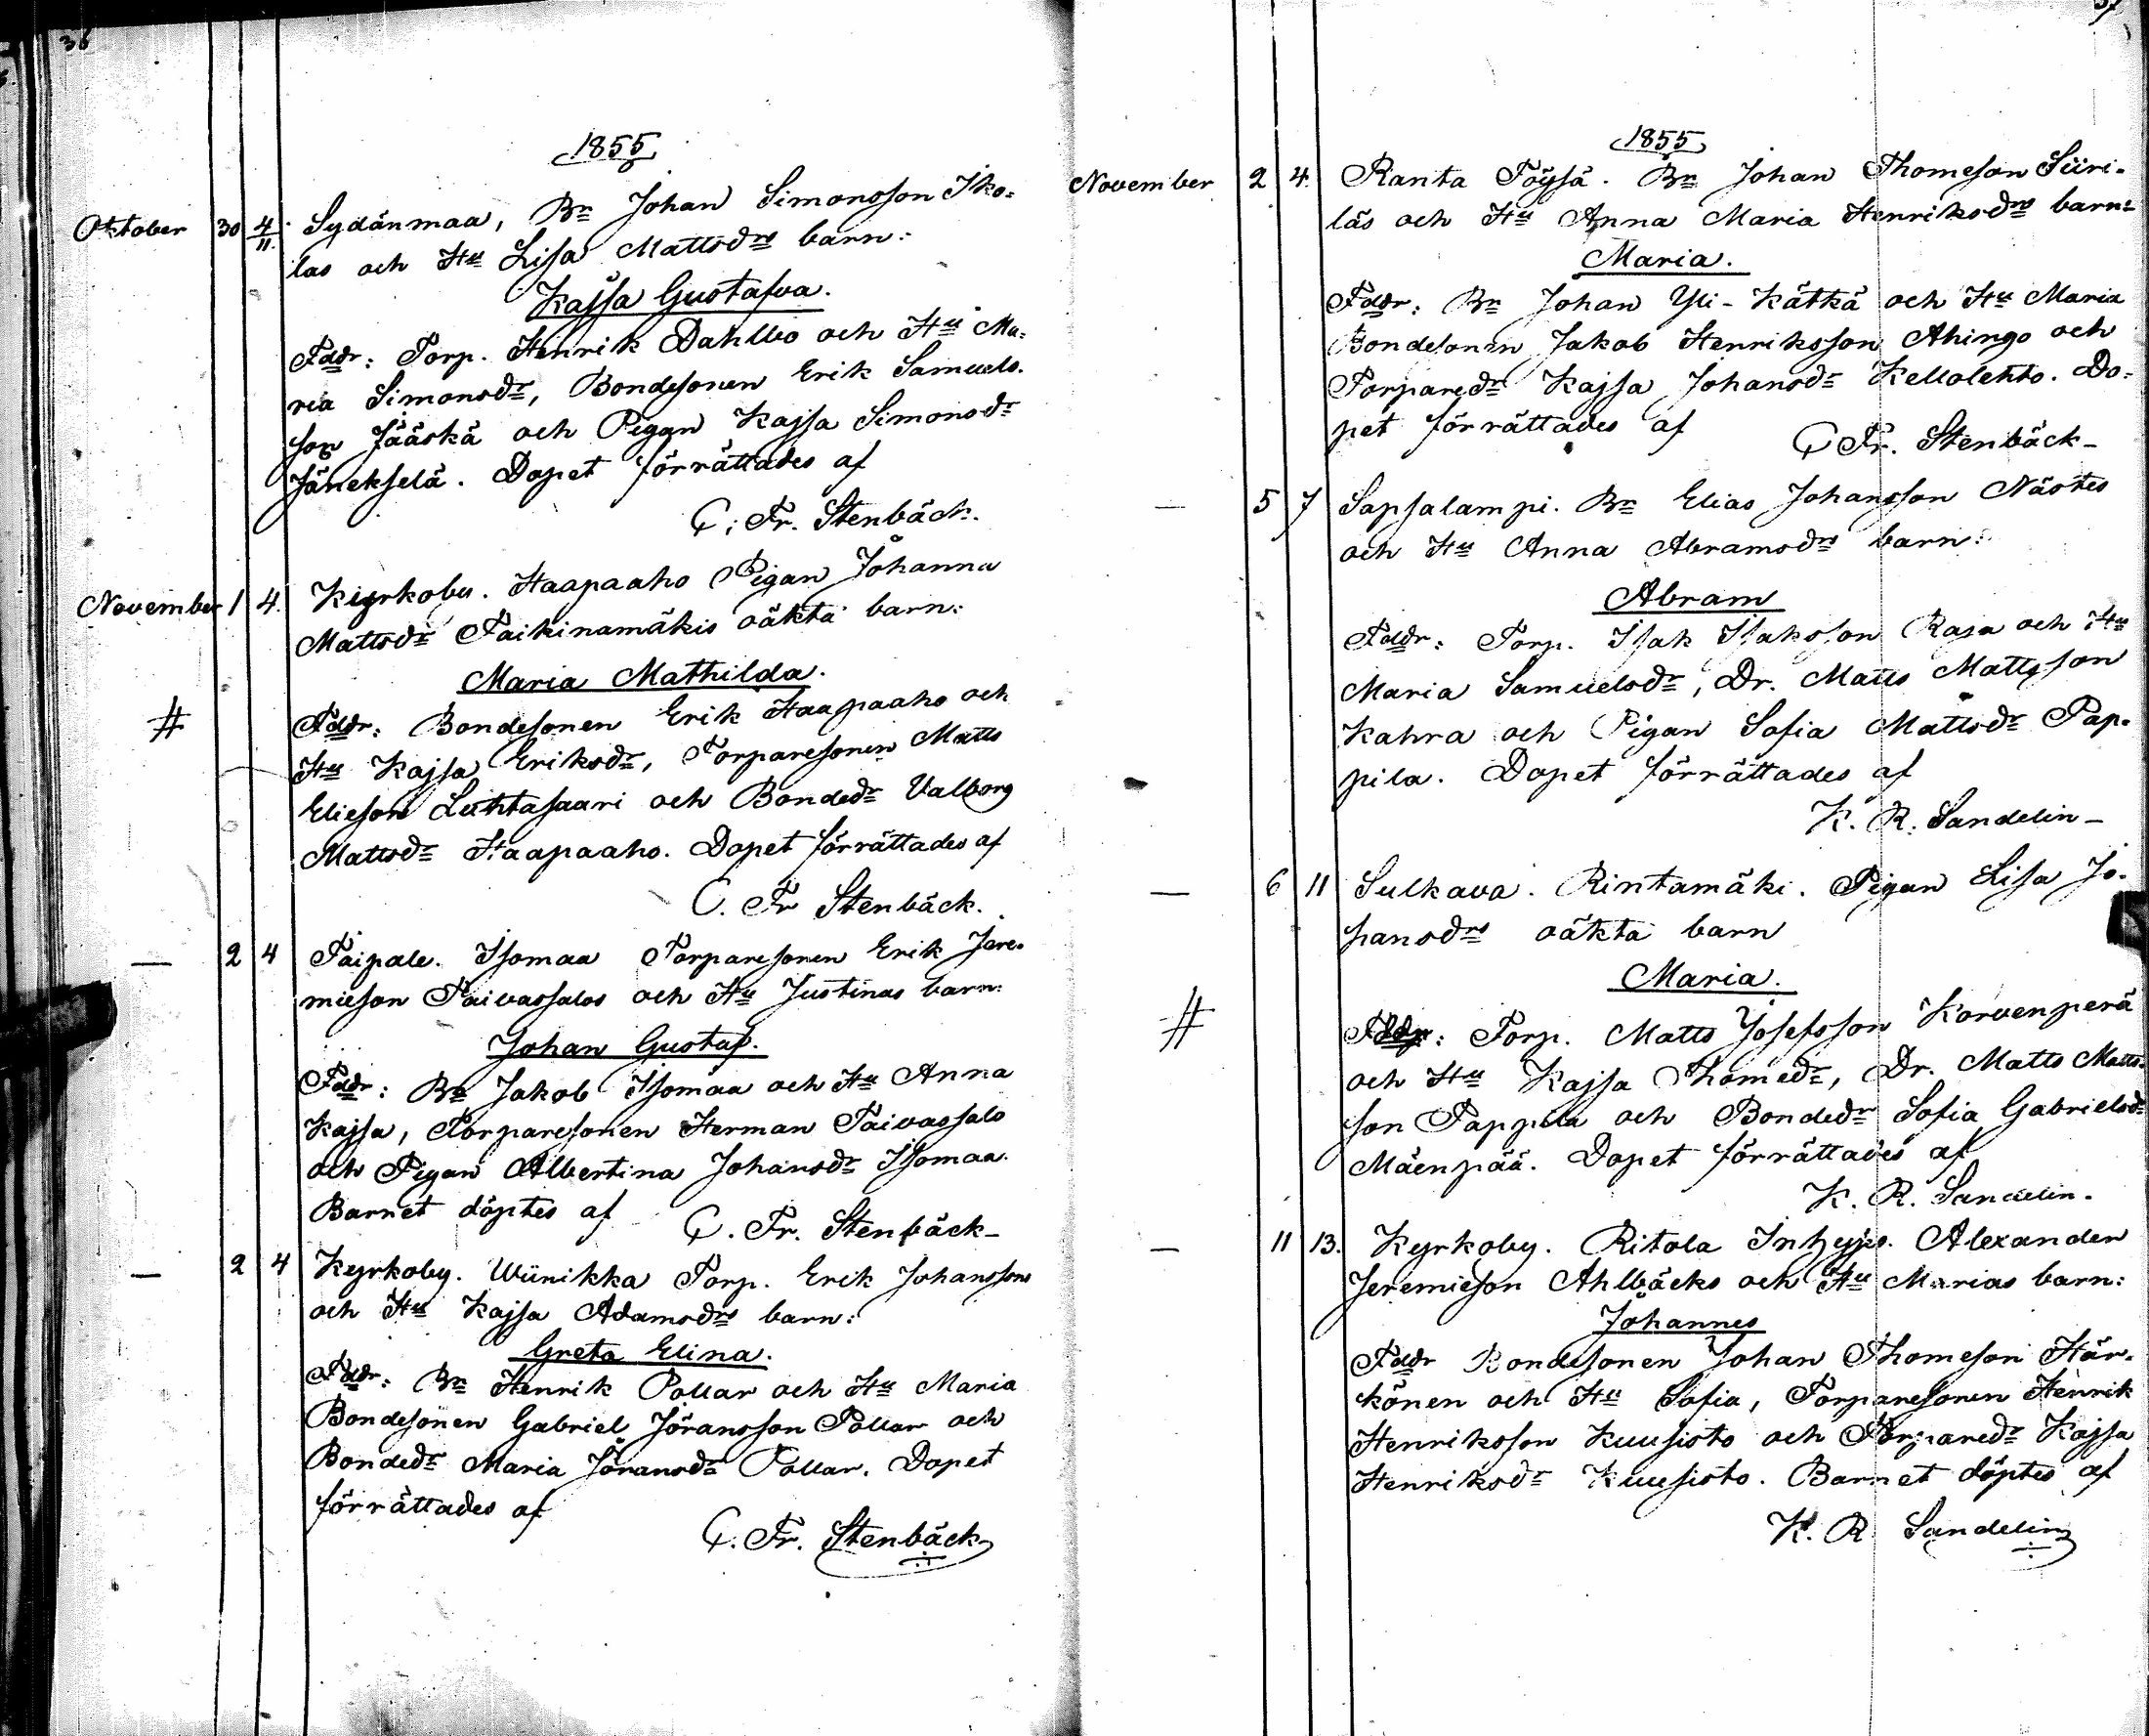 36
1855
Oktober 30 4/11. Sydänmaa, Bn Johan Simonsson Iko-
las och Hu Lisa Mattsdrs barn:
Kajsa Gustafva.
Faddr: Torp. Henrik Dahlbo och Hu Ma-
ria Simonsdr, Bondesonen Erik Samuels-
son Jääskä och Pigan Kajsa Simonsdr
Jänekselä. Dopet förrättades af
C. Fr. Stenbäck.
November 1 4. Kyrkoby. Haapaaho Pigan Johanna
Mattsdr Paikinamäkis oäkta barn:
Maria Mathilda.
# Faddr: Bondesonen Erik Haapaaho och
Hu Kajsa Eriksdr, Torparesonen Matts
Elieson Luhtasaari och Bondedr Valborg
Mattsdr Haapaaho. Dopet förrättades af
C. Fr Stenbäck.
— 2 4 Taipale. Isomaa Torparesonen Erik Jere-
mieson Taivassalos och Hu Justinas barn:
Johan Gustaf.
Faddr: Bn Jakob Isomaa och Hu Anna
Kajsa, Torparesonen Herman Taivassalo
och Pigan Albertina Johansdr Isomaa.
Barnet döptes af C. Fr. Stenbäck-
— 2 4 Kyrkoby. Wiinikka Torp. Erik Johanssons
och Hu Kajsa Adamsdrs barn:
Greta Elina.
Faddr: Bn Henrik Pollar och Hu Maria
Bondesonen Gabriel Jöransson Pollar och
Bondedr Maria Jöransdr Pollar. Dopet
förrättades af
C. Fr. Stenbäck
1855
November 2 4. Ranta Töysä. Bn Johan Thomeson Siiri-
läs och Hu Anna Maria Henriksdrs barn:
Maria.
Faddr: Bn Johan Yli-Kätkä och Hu Maria
Bondesonen Jakob Henriksson Ahingo och
Torparedr Kajsa Johansdr Kellolehto. Do-
pet förrättades af C Fr. Stenbäck-
— 5 7 Sapsalampi. Bn Elias Johansson Nästes
och Hu Anna Abramsdrs barn:
Abram
Faddr: Torp. Isak Isaksson Rasa och Hu
Maria Samuelsdr, Dr. Matts Mattsson
Kahra och Pigan Sofia Mattsdr Pap-
pila. Dopet förrättades af
K. R. Sandelin-
— 6 11 Sulkava. Rintamäki. Pigan Lisa Jo-
hansdrs oäkta barn
Maria.
# Faddr: Torp. Matts Josefsson Korvenperä
och Hu Kajsa Thomedr, Dr. Matts Matts-
son Pappila och Bondedr Sofia Gabrielsdr
Mäenpää. Dopet förrättades af
K. R. Sandelin.
— 11 13. Kyrkoby. Ritola Inhysg. Alexander
Jeremieson Ahlbäcks och Hu Marias barn:
Johannes
Faddr Bondesonen Johan Thomeson Här-
könen och Hu Sofia, Torparesonen Henrik
Henriksson Kuusisto och Torparedr Kajsa
Henriksdr Kuusisto. Barnet döptes af
K. R Sandelin